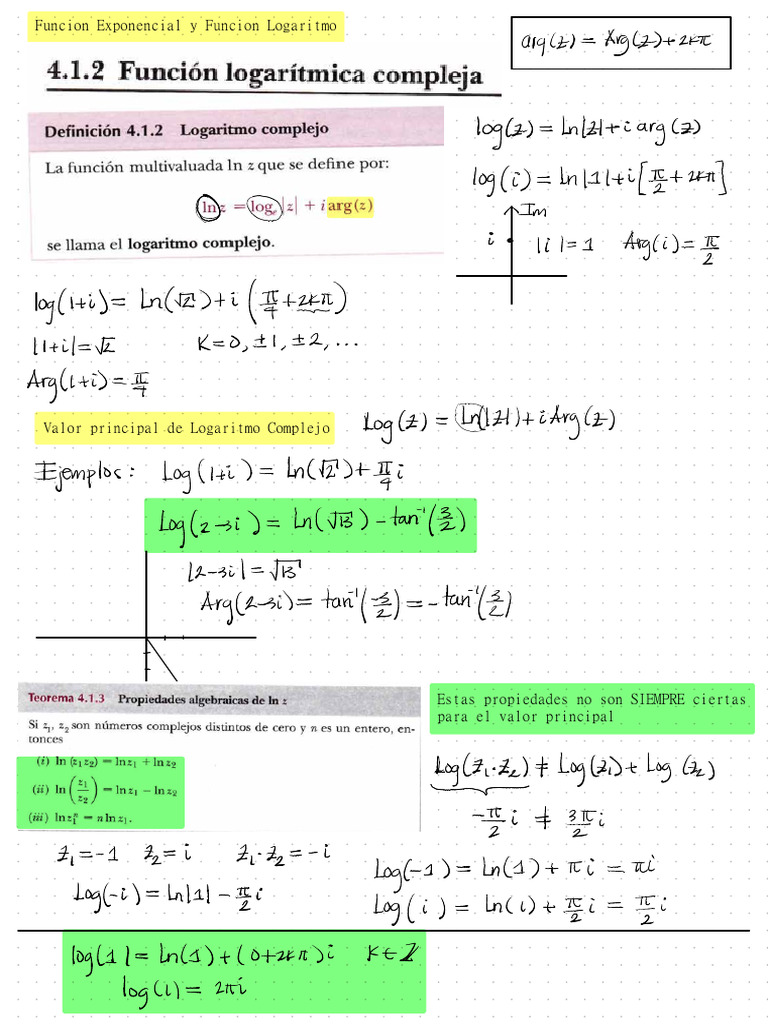 Funcion Exponencial y Funcion Logaritmo
arg(z) = Arg(z)+2kπ
4.1.2 Función logarítmica compleja
Definición 4.1.2 Logaritmo complejo
La función multivaluada ln z que se define por:
ln z = logₑ|z| + i arg(z)
se llama el logaritmo complejo.
log(z) = ln|z| + i arg(z)
log(i) = ln|1| + i[π/2 + 2kπ]
Im
i
|i| = 1 Arg(i) = π/2
log(1+i) = Ln(√2) + i(π/4 + 2kπ)
|1+i| = √2 K=0, ±1, ±2, ...
Arg(1+i) = π/4
Valor principal de Logaritmo Complejo
Log(z) = Ln(|z|) + i Arg(z)
Ejemplos: Log(1+i) = Ln(√2) + π/4 i
Log(2-3i) = Ln(√13) - tan⁻¹(3/2)
|2-3i| = √13
Arg(2-3i) = tan⁻¹(-3/2) = -tan⁻¹(3/2)
Teorema 4.1.3 Propiedades algebraicas de ln z
Si z₁, z₂ son números complejos distintos de cero y n es un entero, en-
tonces
(i) ln (z₁z₂) = ln z₁ + ln z₂
(ii) ln (z₁/z₂) = ln z₁ - ln z₂
(iii) ln z₁ⁿ = n ln z₁.
Estas propiedades no son SIEMPRE ciertas
para el valor principal
Log(z₁·z₂) ≠ Log(z₁) + Log(z₂)
-π/2 i ≠ 3π/2 i
z₁=-1 z₂=i z₁·z₂=-i
Log(-i) = Ln|1| - π/2 i
Log(-1) = Ln(1) + πi = πi
Log(i) = Ln(1) + π/2 i = π/2 i
log(1) = Ln(1) + (0+2kπ)i K∈Z
log(1) = 2πi